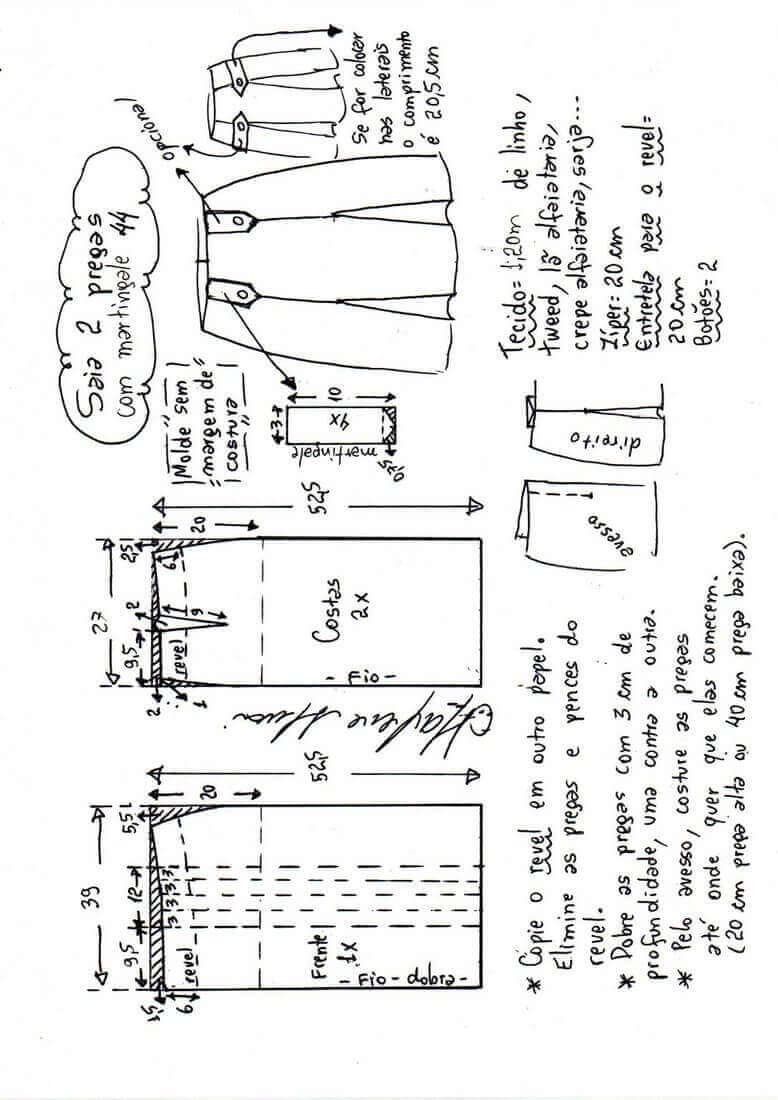 Saia 2 pregas
com martingale 44
opcional
Se for colocar
nas laterais
o comprimento
é 20,5 cm
"Molde sem"
"margem de"
"costura"
3
10
4x
martingale
0,75
39
9,5
12
5,5
3 3 3 3
1,5
6
revel
20
52,5
Frente
1x
- Fio - dobra -
27
9,5
2
2,5
2
1
9
6
revel
20
52,5
Costas
2x
- Fio -
Marlene Mukai
avesso
direito
Tecido= 1,20m de linho,
tweed, lã alfaiataria,
crepe alfaiataria, sarja...
Zíper: 20 cm
Entretela para o revel=
20 cm
Botões: 2
* Copie o revel em outro papel.
Elimine as pregas e pences do
revel.
* Dobre as pregas com 3 cm de
profundidade, uma contra a outra.
* Pelo avesso, costure as pregas
até onde quer que elas comecem.
(20 cm prega alta ou 40 cm prega baixa).